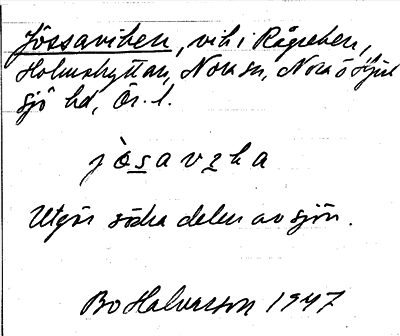 Jössaviken, vik i Rågreken,
Holmshyttan, Nora sn, Nora ò Hjul
sjö hd, Ör. l.
jòsavᴉka
Utgör södra delen av sjön.
Bo Halvarsson 1947